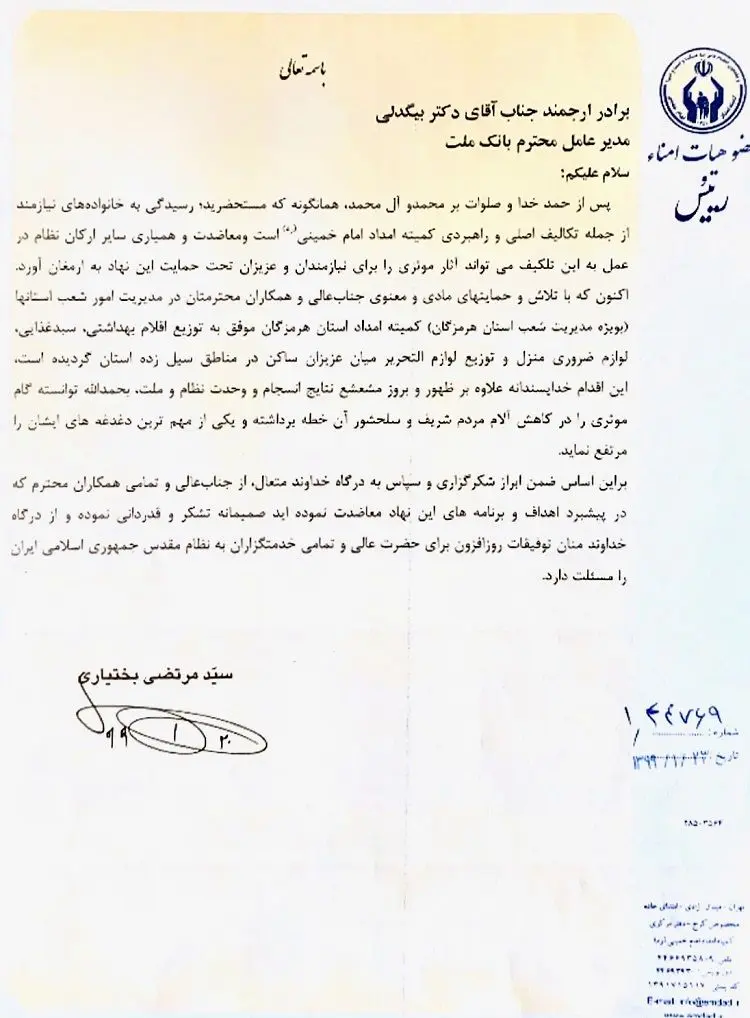 باسمه تعالی
برادر ارجمند جناب آقای دکتر بیگدلی
مدیر عامل محترم بانک ملت
سلام علیکم:
پس از حمد خدا و صلوات بر محمدو آل محمد، همانگونه که مستحضرید؛ رسیدگی به خانواده‌های نیازمند
از جمله تکالیف اصلی و راهبردی کمیته امداد امام خمینی(ره) است ومعاضدت و همیاری سایر ارکان نظام در
عمل به این تلکیف می تواند آثار موثری را برای نیازمندان و عزیزان تحت حمایت این نهاد به ارمغان آورد.
اکنون که با تلاش و حمایتهای مادی و معنوی جناب‌عالی و همکاران محترمتان در مدیریت امور شعب استانها
(بویژه مدیریت شعب استان هرمزگان) کمیته امداد استان هرمزگان موفق به توزیع اقلام بهداشتی، سبدغذایی،
لوازم ضروری منزل و توزیع لوازم التحریر میان عزیزان ساکن در مناطق سیل زده استان گردیده است،
این اقدام خداپسندانه علاوه بر ظهور و بروز مشعشع نتایج انسجام و وحدت نظام و ملت، بحمدالله توانسته گام
موثری را در کاهش آلام مردم شریف و سلحشور آن خطه برداشته و یکی از مهم ترین دغدغه های ایشان را
مرتفع نماید.
براین اساس ضمن ابراز شکرگزاری و سپاس به درگاه خداوند متعال، از جناب‌عالی و تمامی همکاران محترم که
در پیشبرد اهداف و برنامه های این نهاد معاضدت نموده اید صمیمانه تشکر و قدردانی نموده و از درگاه
خداوند منان توفیقات روزافزون برای حضرت عالی و تمامی خدمتگزاران به نظام مقدس جمهوری اسلامی ایران
را مسئلت دارد.
سیّد مرتضی بختیاری
۹۹ ۱ ۲۰
ضو هیات امناء
و
رئیس
شماره:
تاریخ ۱۳۹۹/۱/۲۳
۲۸۵۰۳۵۶۴